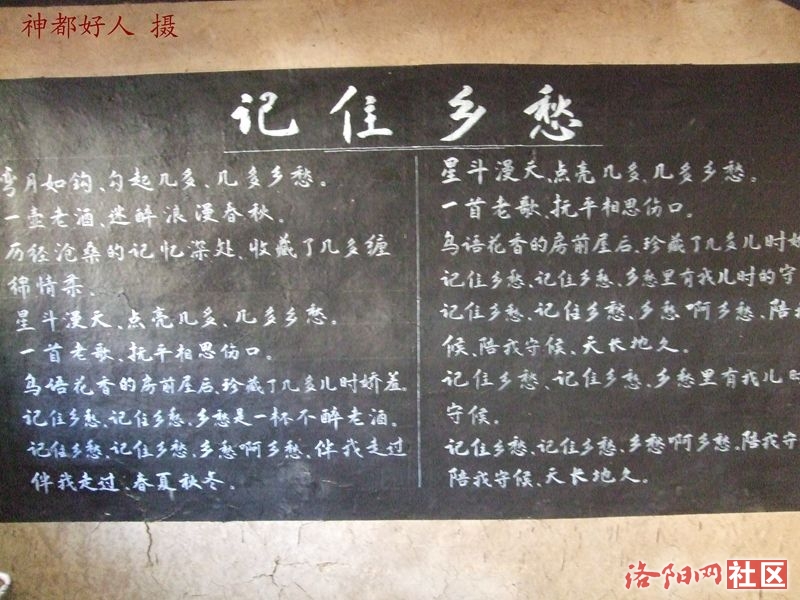 神都好人 摄
记住乡愁
弯月如钩、勾起几多、几多乡愁。
一壶老酒、迷醉浪漫春秋。
历经沧桑的记忆深处、收藏了几多缠
绵情柔、
星斗漫天、点亮几多、几多乡愁。
一首老歌、抚平相思伤口。
鸟语花香的房前屋后、珍藏了几多儿时娇羞。
记住乡愁、记住乡愁、乡愁是一杯不醉老酒。
记住乡愁、记住乡愁、乡愁啊乡愁、伴我走过
伴我走过、春夏秋冬。
星斗漫天、点亮几多、几多乡愁。
一首老歌、抚平相思伤口。
鸟语花香的房前屋后、珍藏了几多儿时娇
记住乡愁、记住乡愁、乡愁里有我儿时的守
记住乡愁、记住乡愁、乡愁啊乡愁、陪我
候、陪我守候、天长地久。
记住乡愁、记住乡愁、乡愁里有我儿时
守候。
记住乡愁、记住乡愁、乡愁啊乡愁。陪我守
陪我守候、天长地久。
洛阳网社区